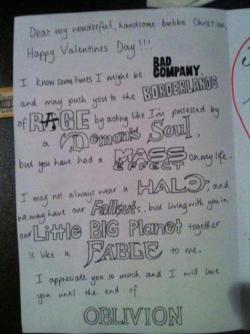 Dear my wonderful, handsome bubba Christian,
Happy Valentines Day!!!
I know sometimes I might be BAD COMPANY
and may push you to the BORDERLANDS
of RAGE by acting like I'm possessed by
a Demon's Soul,
but you have had a MASS EFFECT on my life.
I may not always wear a HALO, and
we may have our Fallout's, but living with you in
our Little BIG Planet together
is like a FABLE to me.
I appreciate you so much and I will love
you until the end of
OBLIVION